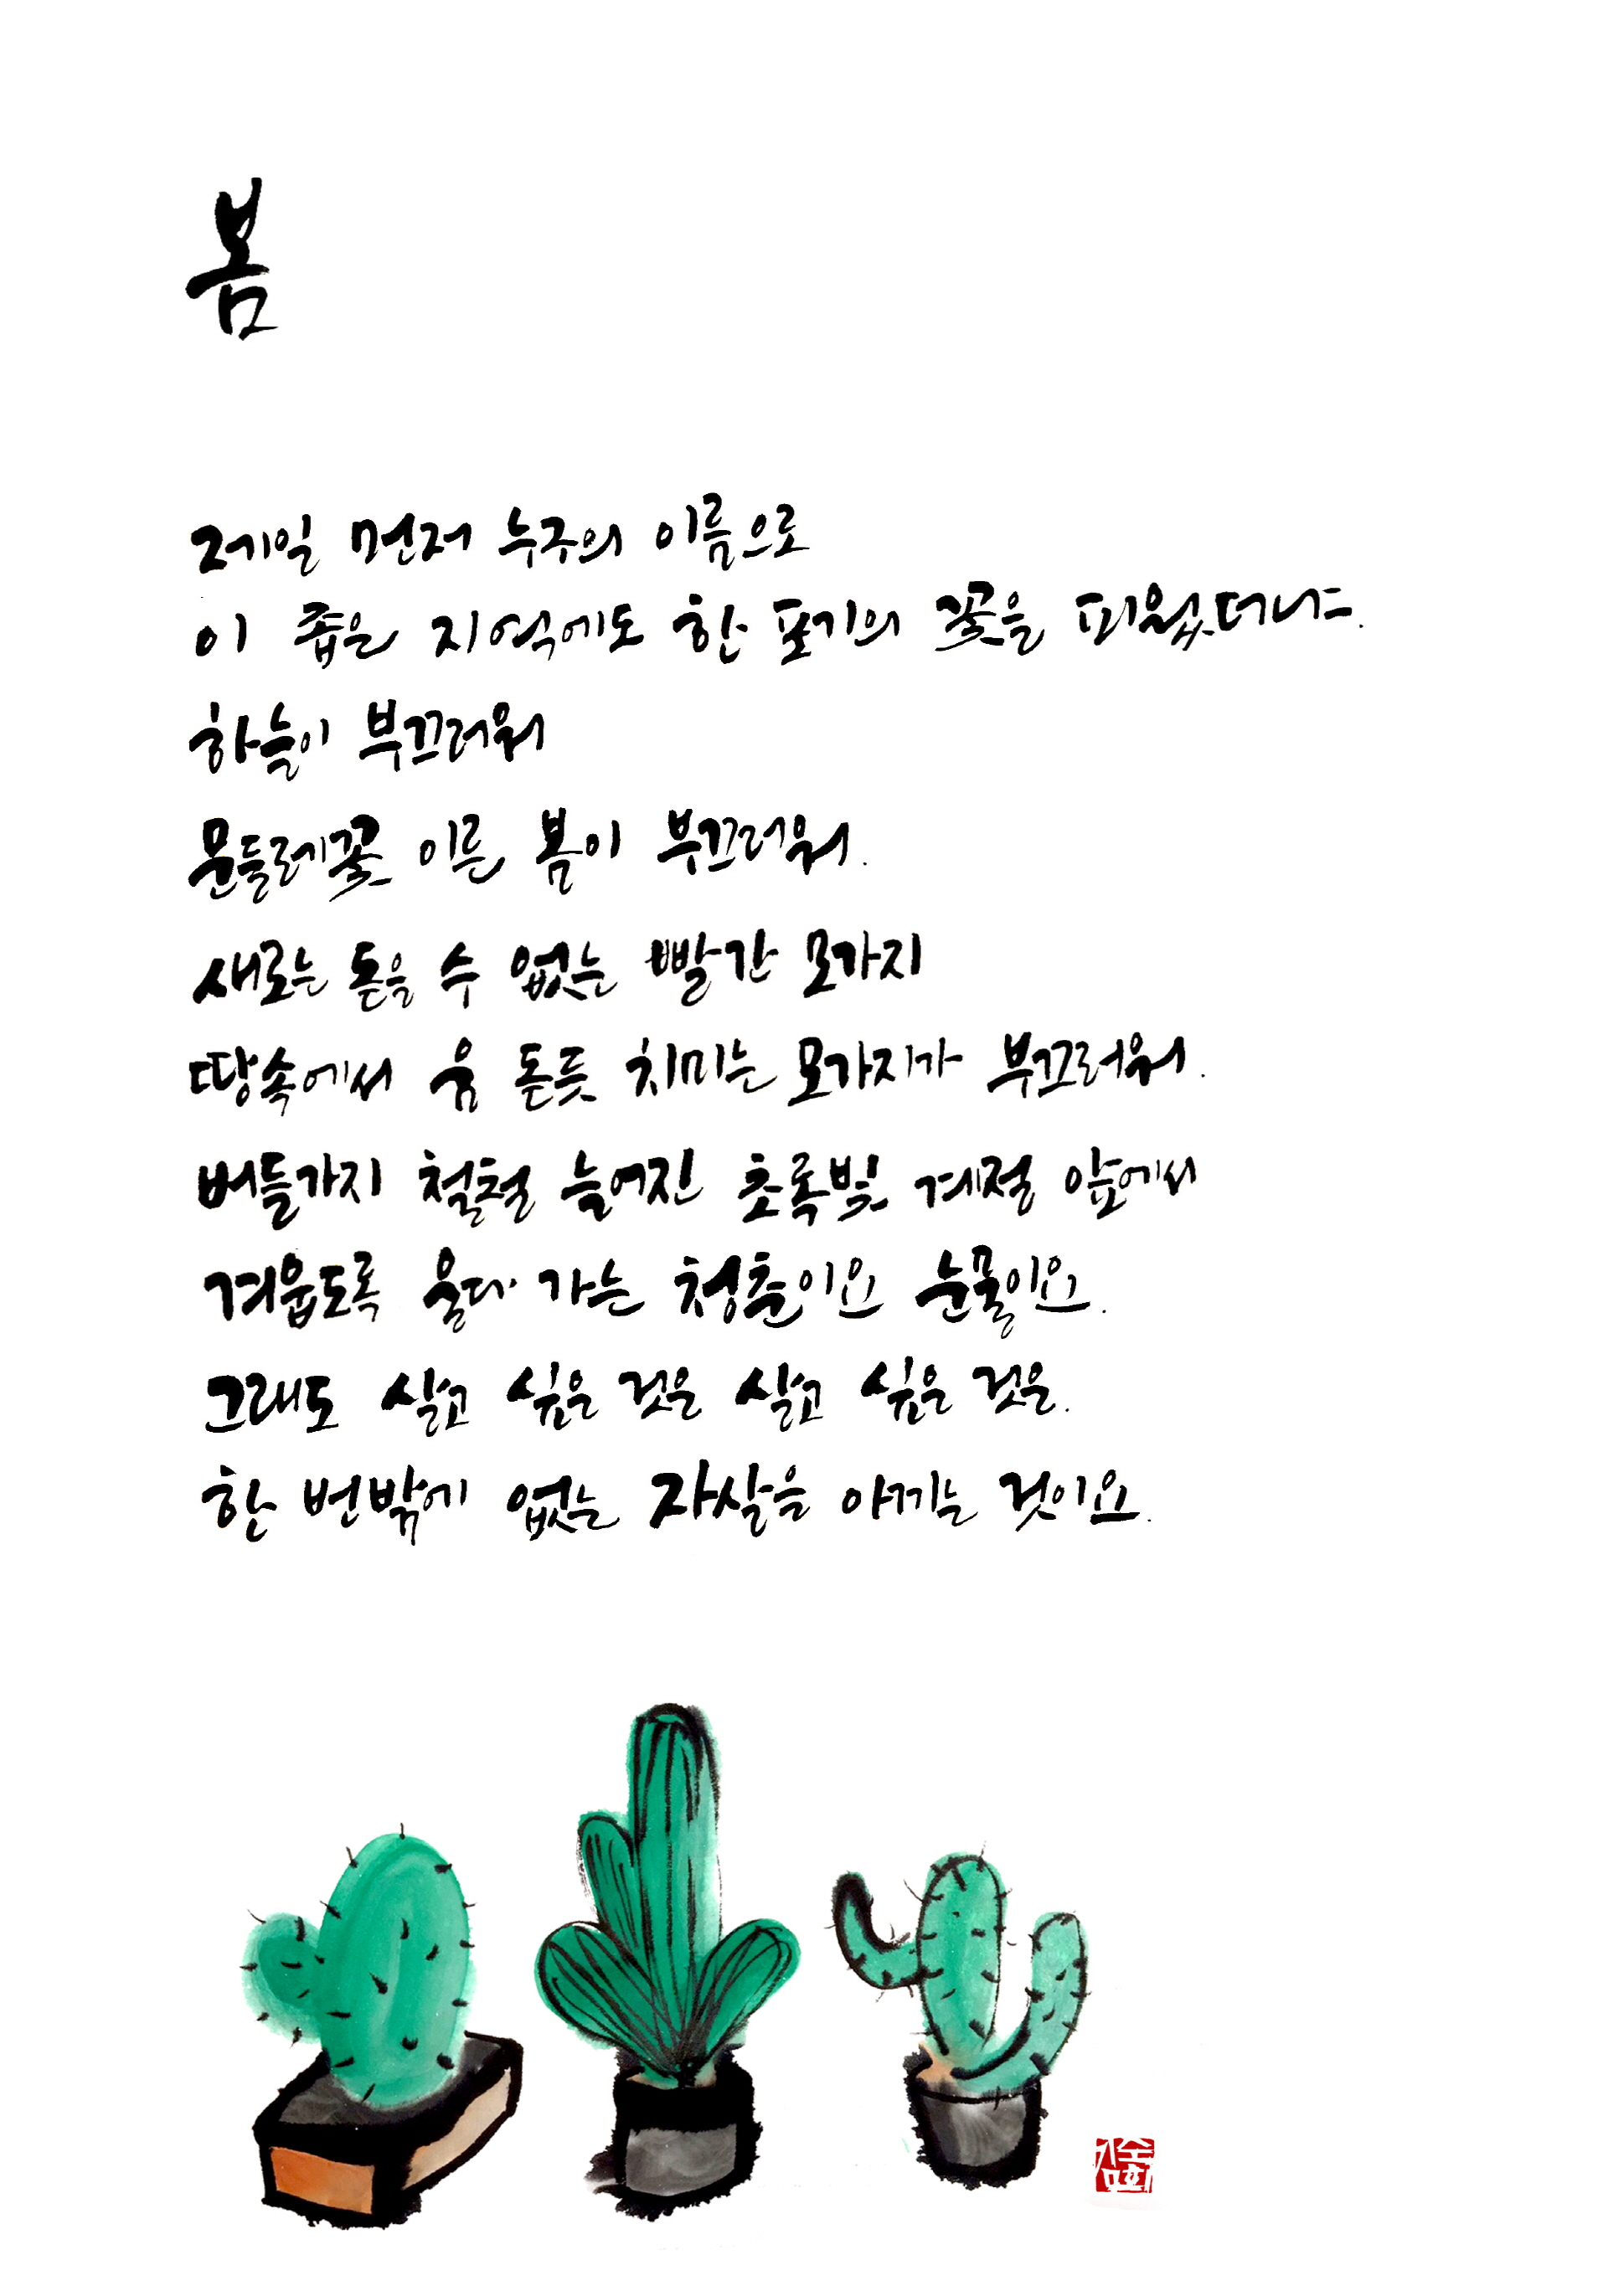 봄
제일 먼저 누구의 이름으로
이 좁은 지역에도 한 포기의 꽃을 피웠더냐.
하늘이 부끄러워
문들레꽃 이른 봄이 부끄러워.
새로는 돋을 수 없는 빨간 모가지
땅속에서 움 돋듯 치미는 모가지가 부끄러워.
버들가지 철철 늘어진 초록빛 계절 앞에서
겨웁도록 울다 가는 청춘이요 눈물이요.
그래도 살고 싶은 것은 살고 싶은 것은.
한 번밖에 없는 자살을 아끼는 것이요.